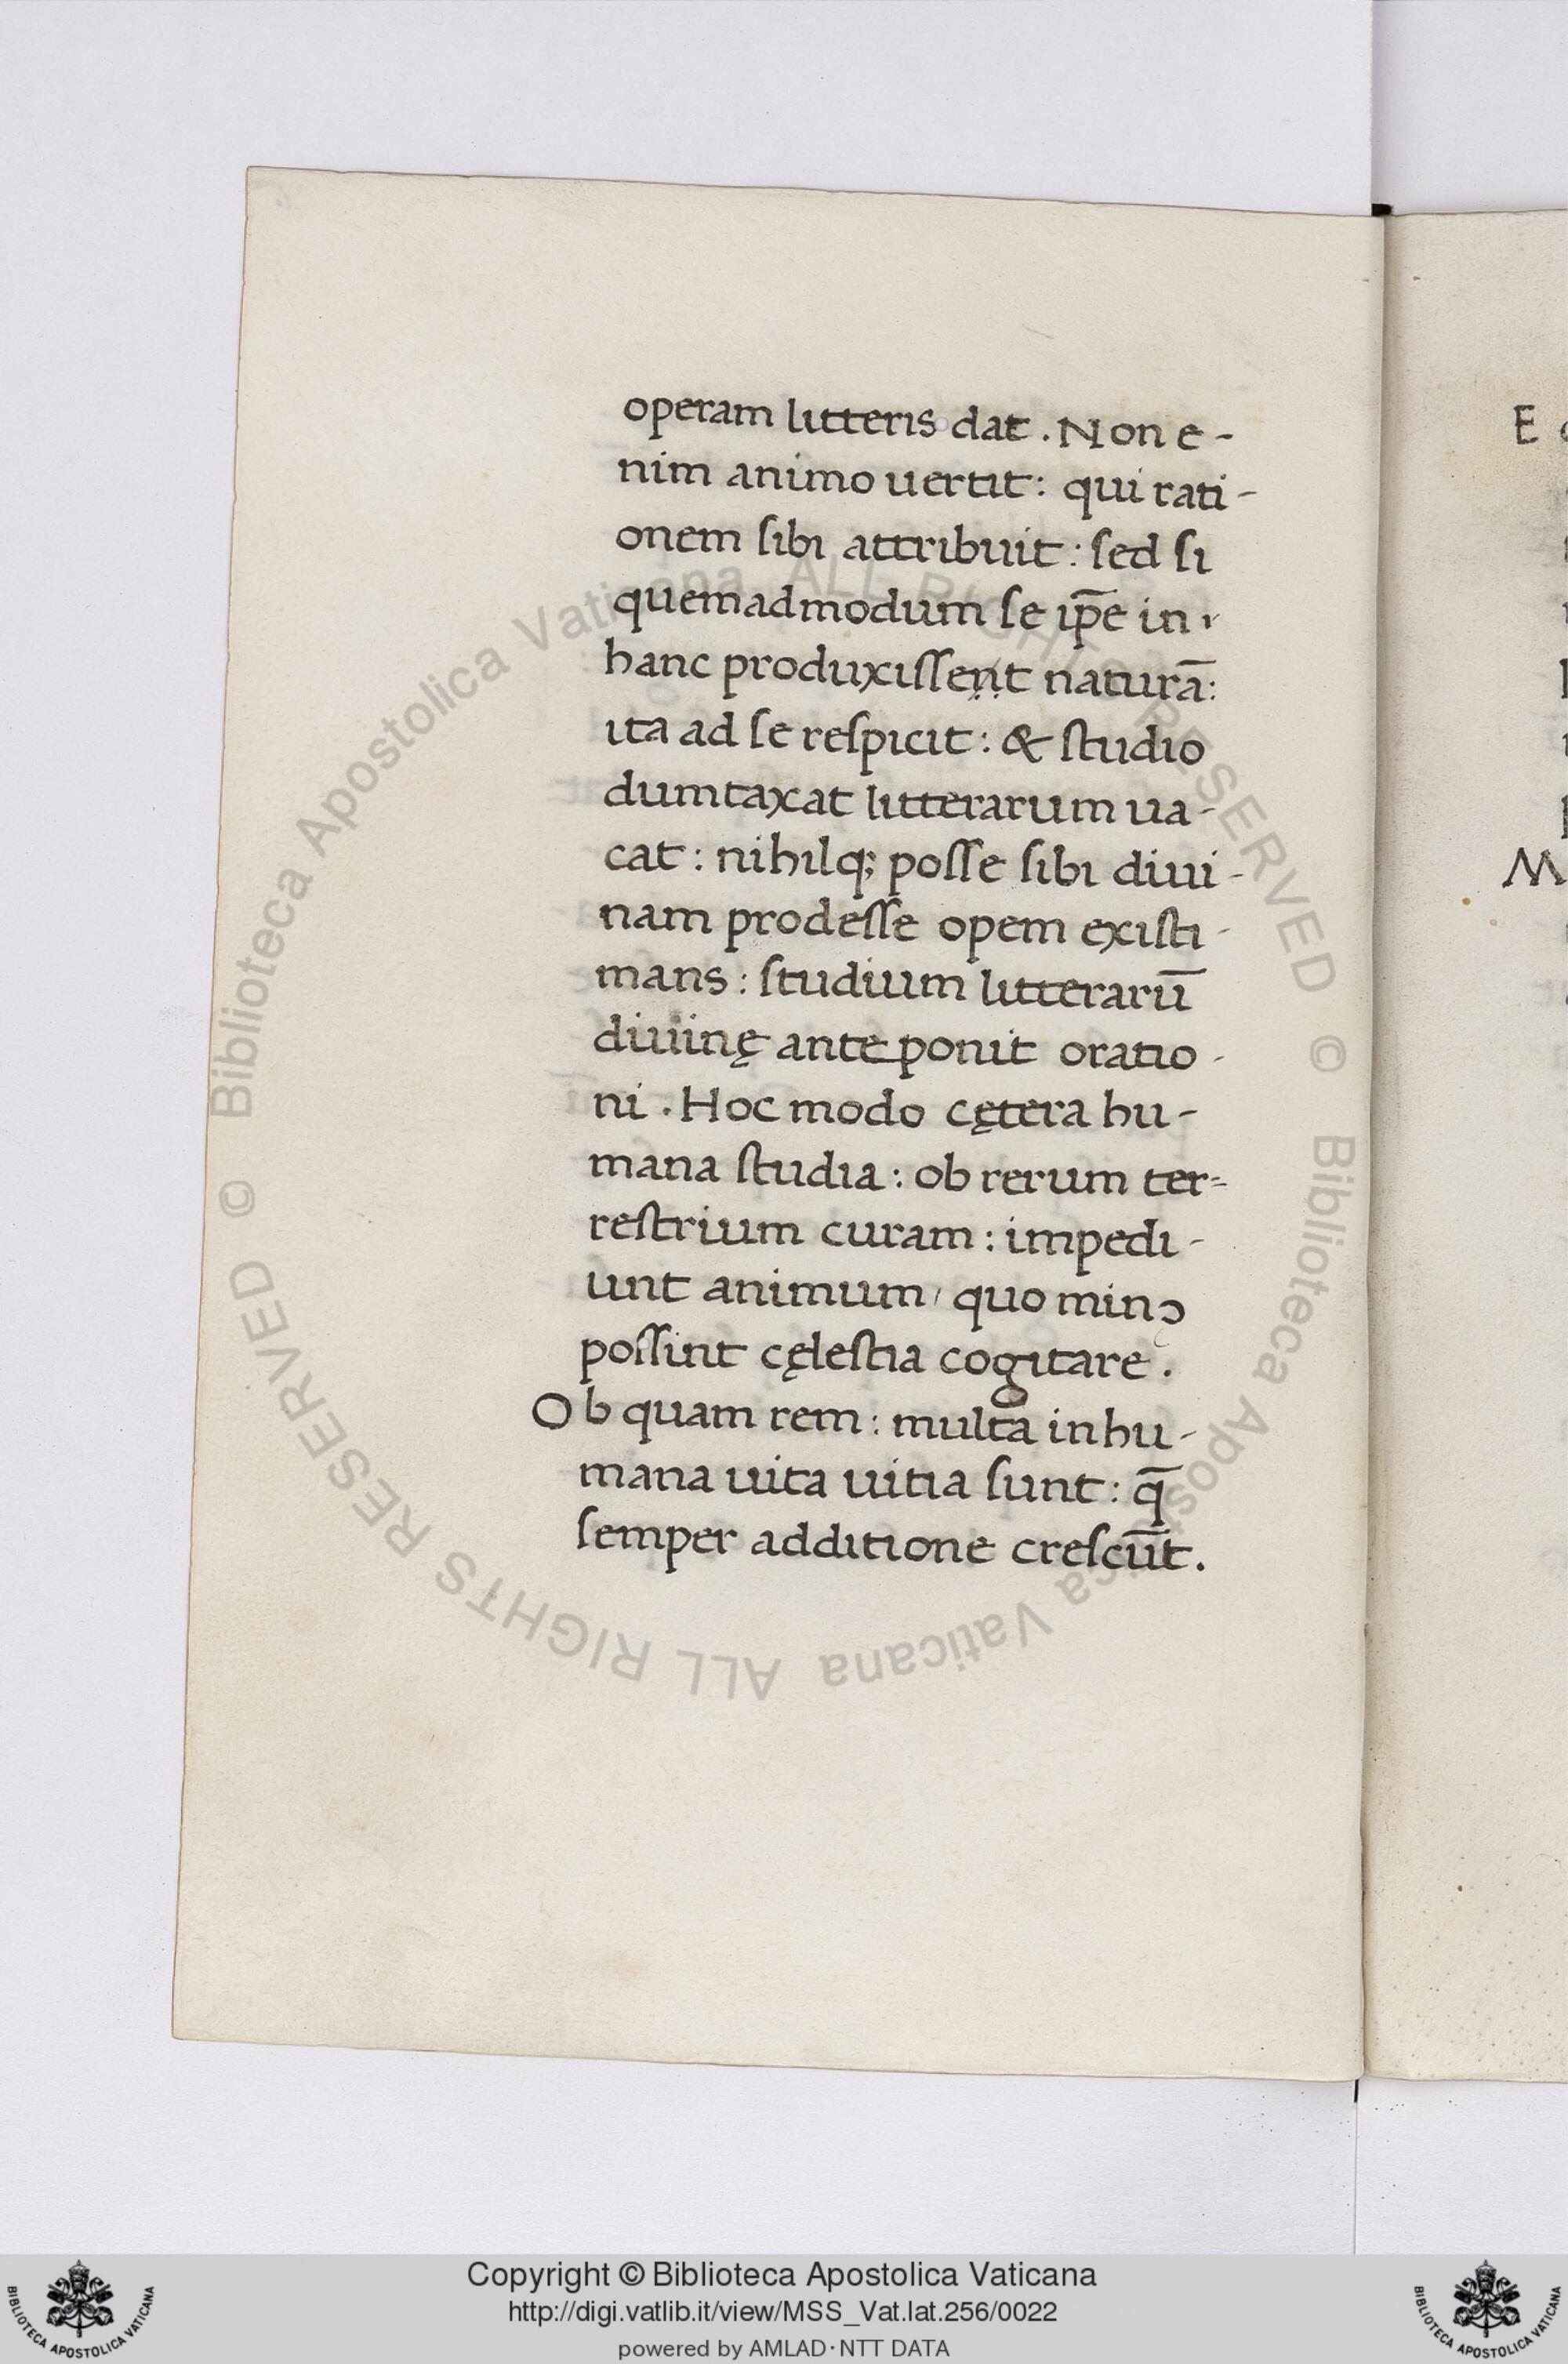 operam litteris dat. Non e-
nim animo uertit: qui rati-
onem sibi attribuit: sed si
quemadmodum se ip̄e in
hanc produxissent naturā:
ita ad se respicit: & studio
dumtaxat litterarum ua-
cat: nihilq; posse sibi diui-
nam prodesse opem existi-
mans: studium litterarū
diuinę anteponit oratio-
ni. Hoc modo cętera hu-
mana studia: ob rerum ter-
restrium curam: impedi-
unt animum, quo minꝯ
possint cęlestia cogitare.
Ob quam rem: multa in hu-
mana uita uitia sunt: q̄
semper additione crescūt.
E
M
© Biblioteca Apostolica Vaticana ALL RIGHTS RESERVED
© Biblioteca Apostolica Vaticana ALL RIGHTS RESERVED
Copyright © Biblioteca Apostolica Vaticana
http://digi.vatlib.it/view/MSS_Vat.lat.256/0022
powered by AMLAD·NTT DATA
BIBLIOTECA APOSTOLICA VATICANA
BIBLIOTECA APOSTOLICA VATICANA